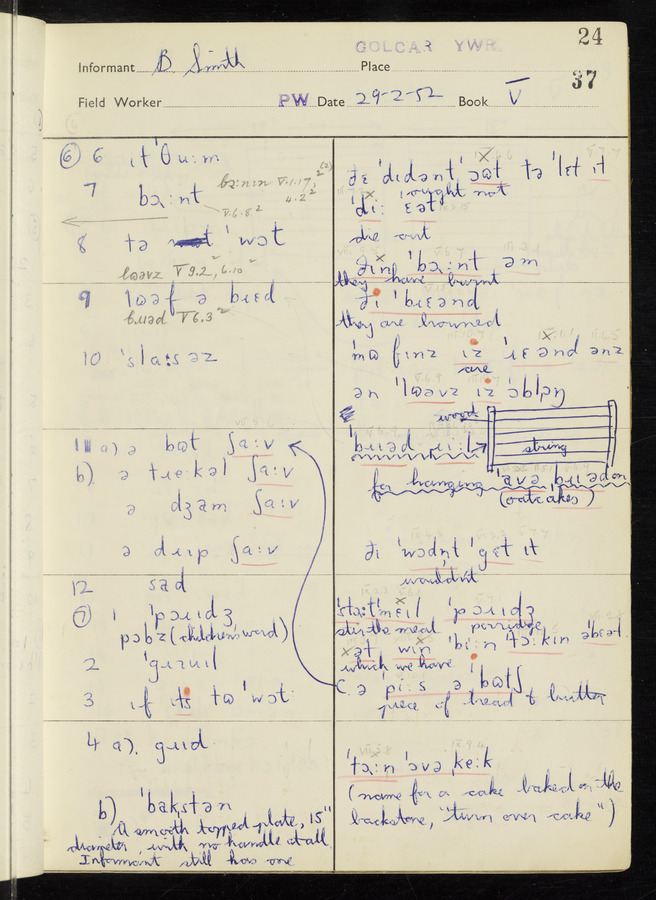 GOLCAR YWR.
24
Informant B. Smith Place
37
Field Worker PW Date 29-2-52 Book V
⑥ 6 ɪt'θu:m
7 bɔ:nt
8 tə 'wɔt
lʊəvz V 9.2, 6.10
9 lʊəf ə bɹɛd
bɹɪəd V 6.3
10 'sla:səz
11 a) ə bʊt ʃa:v
b) ə tɹɛ:kəl ʃa:v
ə dʒam ʃa:v
ə dɹɪp ʃa:v
12 sad
⑦ 1 'pɔɹɪdʒ
pɔbz (children's word)
2 'gɹʊɪl
3 ɪf ɪts tʊ 'wɔt
4 a). gɹɪd
b) 'bak,stən
A smooth topped plate, 15"
diameter, with no handle at all
Informant still has one
ðɛ 'dɪdənt 'ɔʊt tə 'lɛt ɪt
ought not
'di: ɛət
die out
ðɪn 'bɔ:nt əm
they have burnt
ðɪ 'bɹɛənd
they are browned
mʊ fɪnz ɪz 'ɹɛəndənz
are
ən 'lʊəvz ɪz 'ɔblɒŋ
wood
'bɹɪəd ɹi:l
string
for hanging 'avə bɹɪəd on
(oatcakes)
ðɪ 'wɔdn̩t 'gɛt ɪt
wouldn't
'stɔ:t'mɛɪl 'pɔɹɪdʒ
stir the meal porridge
ət wɪn 'bi:n 'tɔ:kɪn əbɛət
which we have
C. ə 'pi:s ə 'bʊtʃ
piece of bread & butter
'tɔ:n 'ɔvə ,kɛ:k
(name for a cake baked on the
backstone, "turn over cake")